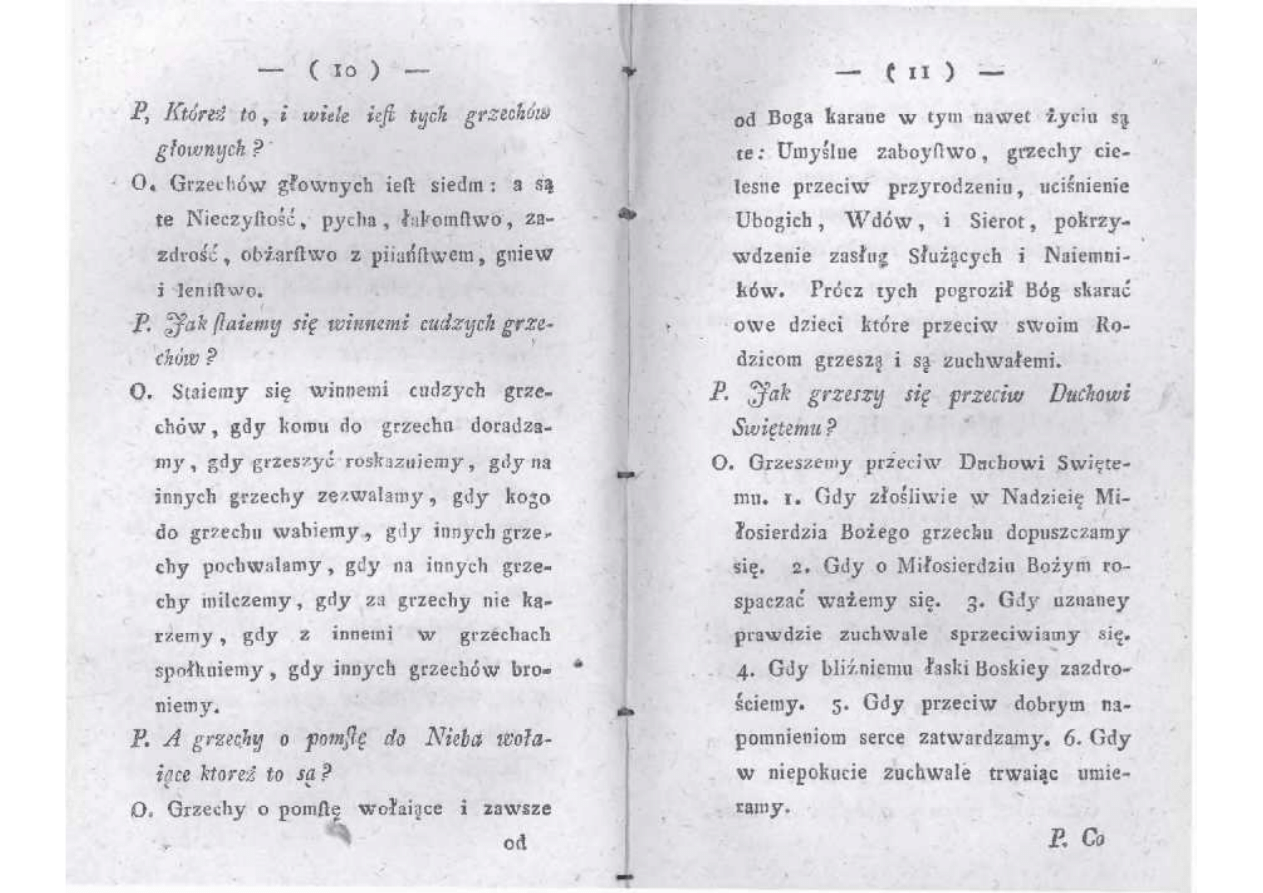 — ( 10 ) —
P, Któreż to, i wiele ieſt tych grzechów
głownych?
O. Grzechów głownych ieſt siedm: a są
te Nieczyſtość, pycha, łakomſtwo, za-
zdrość, obżarſtwo z piiańſtwem, gniew
i leniſtwo.
P. Jak ſtaiemy się winnemi cudzych grze-
chów?
O. Staiemy się winnemi cudzych grze-
chów, gdy komu do grzechu doradza-
my, gdy grzeszyć roskazuiemy, gdy na
innych grzechy zezwalamy, gdy kogo
do grzechu wabiemy, gdy innych grze-
chy pochwalamy, gdy na innych grze-
chy milczemy, gdy za grzechy nie ka-
rzemy, gdy z innemi w grzechach
społkuiemy, gdy innych grzechów bro-
niemy.
P. A grzechy o pomſtę do Nieba woła-
iące ktoreż to są?
O. Grzechy o pomſtę wołaiące i zawsze
od
— ( 11 ) —
od Boga karane w tym nawet życiu są
te: Umyślne zaboyſtwo, grzechy cie-
lesne przeciw przyrodzeniu, uciśnienie
Ubogich, Wdów, i Sierot, pokrzy-
wdzenie zasług Służących i Naiemni-
ków. Prócz tych pogroził Bóg skarać
owe dzieci które przeciw swoim Ro-
dzicom grzeszą i są zuchwałemi.
P. Jak grzeszy się przeciw Duchowi
Swiętemu?
O. Grzeszemy przeciw Duchowi Swięte-
mu. 1. Gdy złośliwie w Nadzieię Mi-
łosierdzia Bożego grzechu dopuszczamy
się. 2. Gdy o Miłosierdziu Bożym ro-
spaczać ważemy się. 3. Gdy uznaney
prawdzie zuchwale sprzeciwiamy się.
4. Gdy bliźniemu łaski Boskiey zazdro-
ściemy. 5. Gdy przeciw dobrym na-
pomnieniom serce zatwardzamy. 6. Gdy
w niepokucie zuchwale trwaiąc umie-
ramy.
P. Co